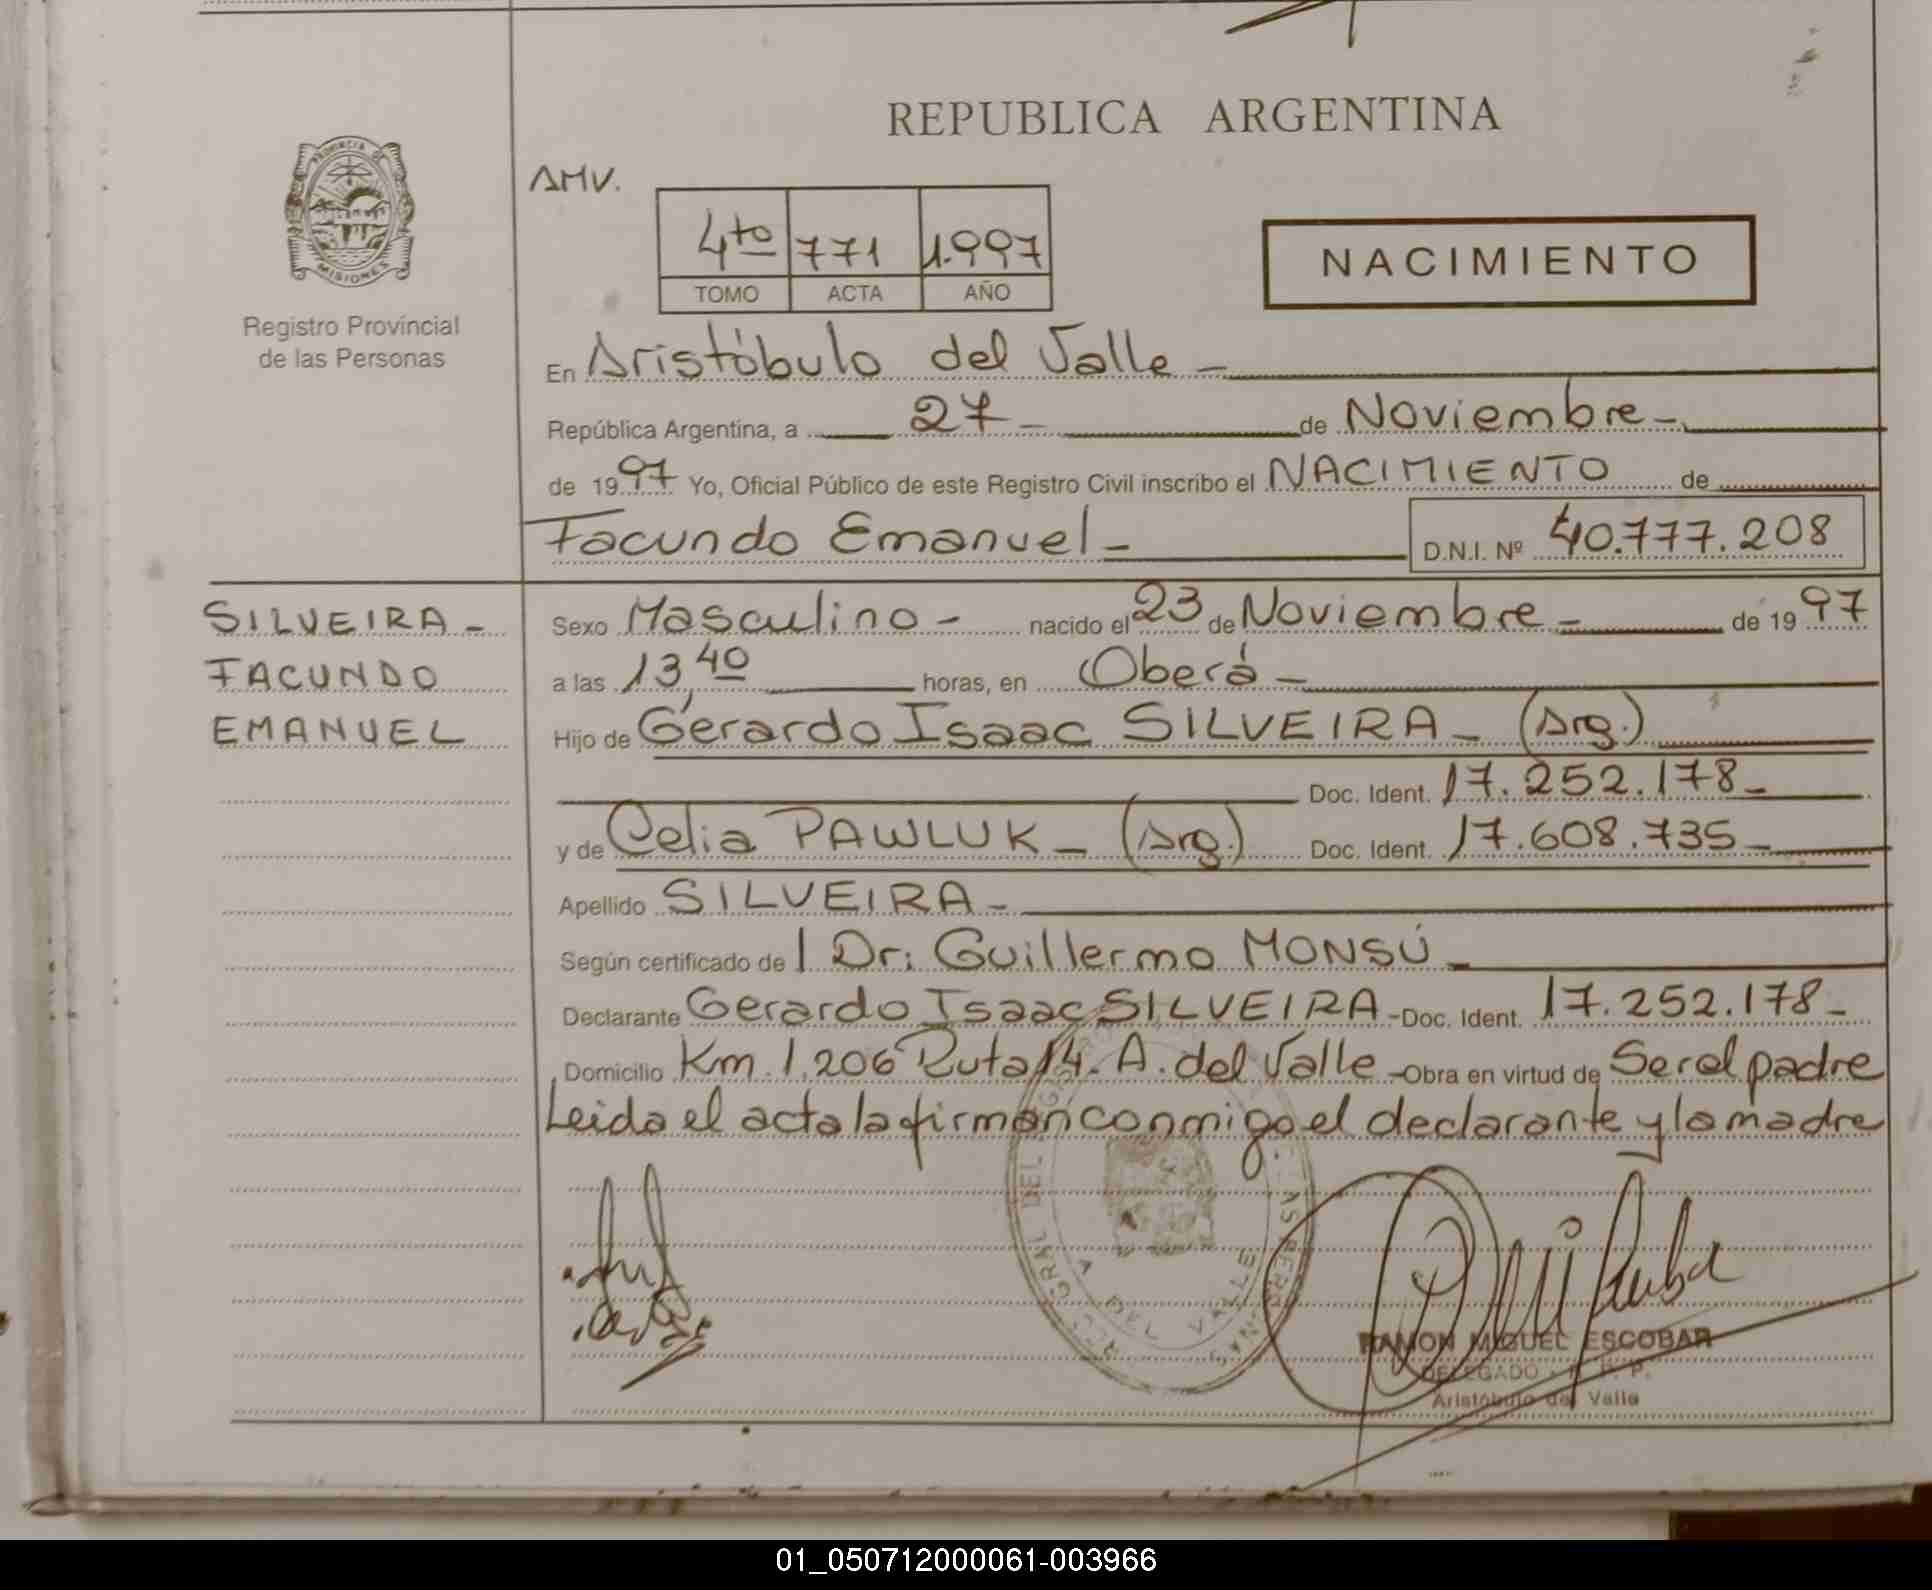 REPUBLICA ARGENTINA
PROVINCIA DE
MISIONES
Registro Provincial
de las Personas
AMV.
4to 771 1.997
TOMO ACTA AÑO
NACIMIENTO
En Aristóbulo del Valle -
República Argentina, a 27 - de Noviembre -
de 1997 Yo, Oficial Público de este Registro Civil inscribo el NACIMIENTO de
Facundo Emanuel - D.N.I. Nº 40.777.208
SILVEIRA -
FACUNDO
EMANUEL
Sexo Masculino - nacido el 23 de Noviembre - de 1997
a las 13,40 horas, en Oberá -
Hijo de Gerardo Isaac SILVEIRA - (Arg.)
Doc. Ident. 17.252.178 -
y de Celia PAWLUK - (Arg.) Doc. Ident. 17.608.735 -
Apellido SILVEIRA -
Según certificado de / Dr: Guillermo MONSÚ -
Declarante Gerardo Isaac SILVEIRA - Doc. Ident. 17.252.178 -
Domicilio Km. 1.206 Ruta 14. A. del Valle - Obra en virtud de Ser el padre
Leida el acta la firman conmigo el declarante y la madre
A. DEL VALLE
RAMON MIGUEL ESCOBAR
DELEGADO - R. P. P.
Aristóbulo del Valle
01_050712000061-003966